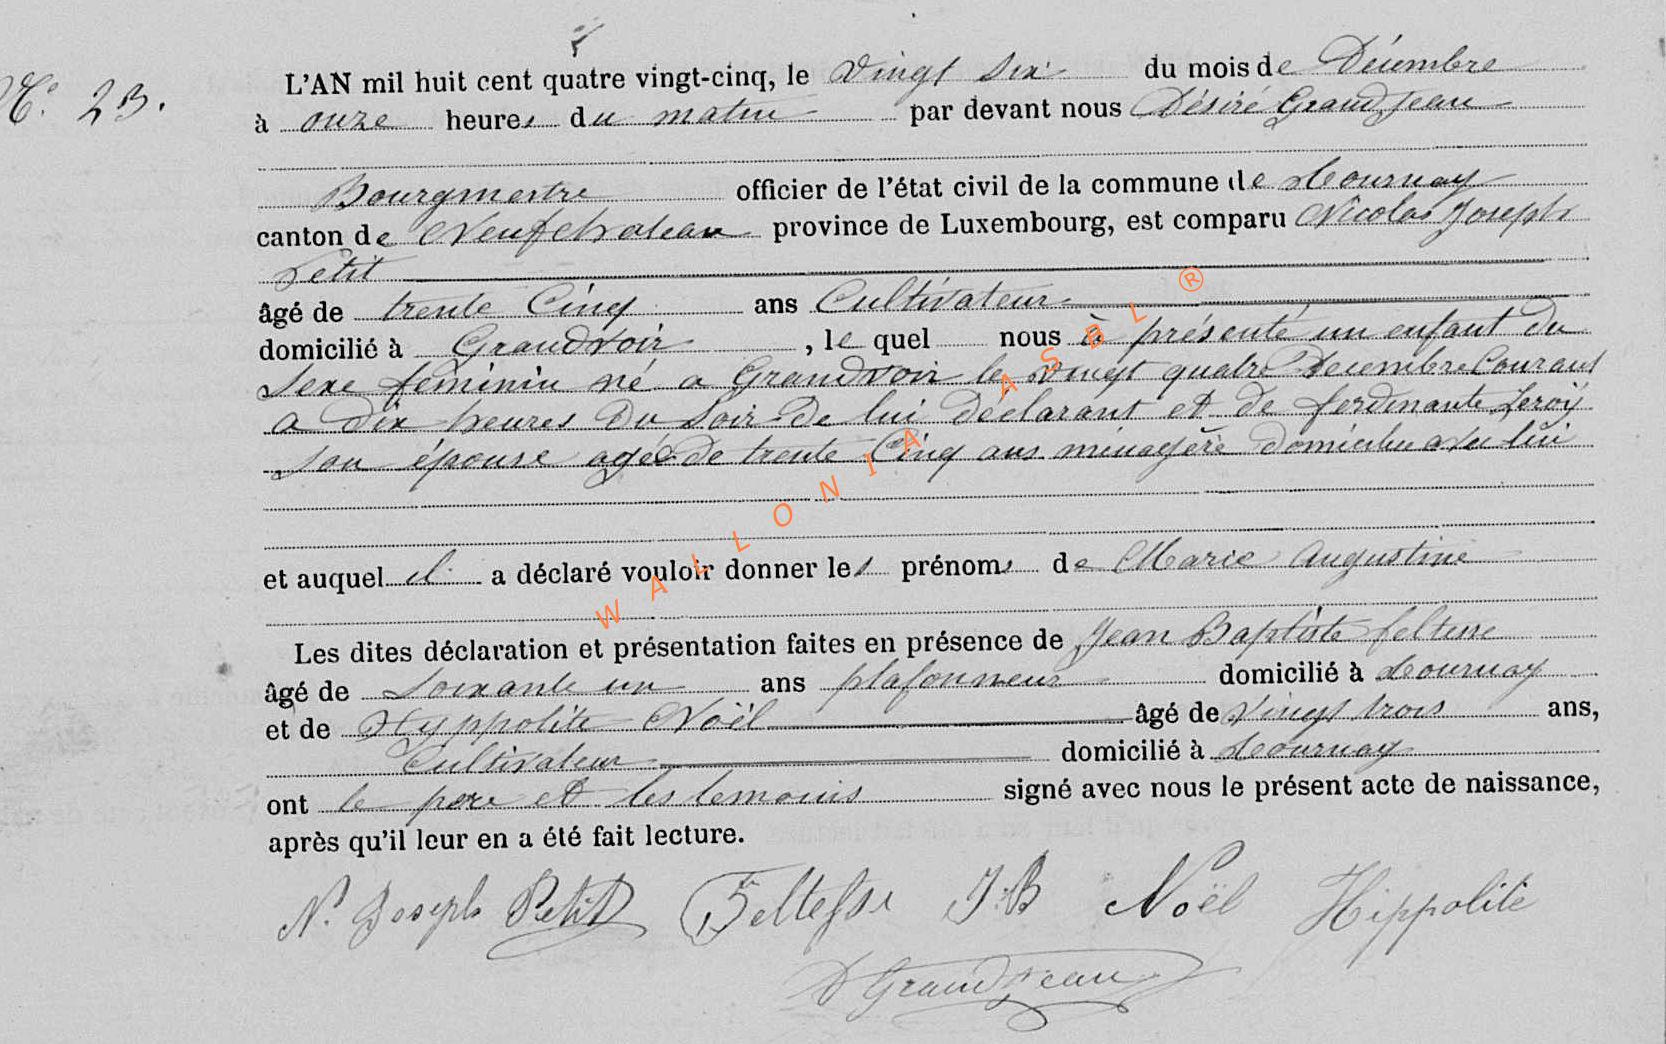 N° 23.
L'AN mil huit cent quatre vingt-cinq, le vingt six du mois de Décembre
à onze heures du matin par devant nous Désiré Grandjean
Bourgmestre officier de l'état civil de la commune de Tournay
canton de Neufchateau province de Luxembourg, est comparu Nicolas Joseph
Petit
âgé de trente Cinq ans Cultivateur
domicilié à Grandvoir , le quel nous à présenté un enfant du
sexe féminin né a Grandvoir le vingt quatre Decembre Courant
a dix heures du soir de lui déclarant et de ferdinante Leroÿ
son épouse agée de trente Cinq ans ménagère domiciliée avec lui
et auquel il a déclaré vouloir donner les prénoms de Marie Augustine
Les dites déclaration et présentation faites en présence de Jean Baptiste feltesse
âgé de Soixante un ans plafonneur domicilié à Tournay
et de Hyppolite Noël âgé de vingt trois ans,
Cultivateur domicilié à Tournay
ont le pere et les temoins signé avec nous le présent acte de naissance,
après qu'il leur en a été fait lecture.
N. Joseph Petit Feltesse J.B Noël Hippolite
D Grandjean
WALLONIA ASBL ®